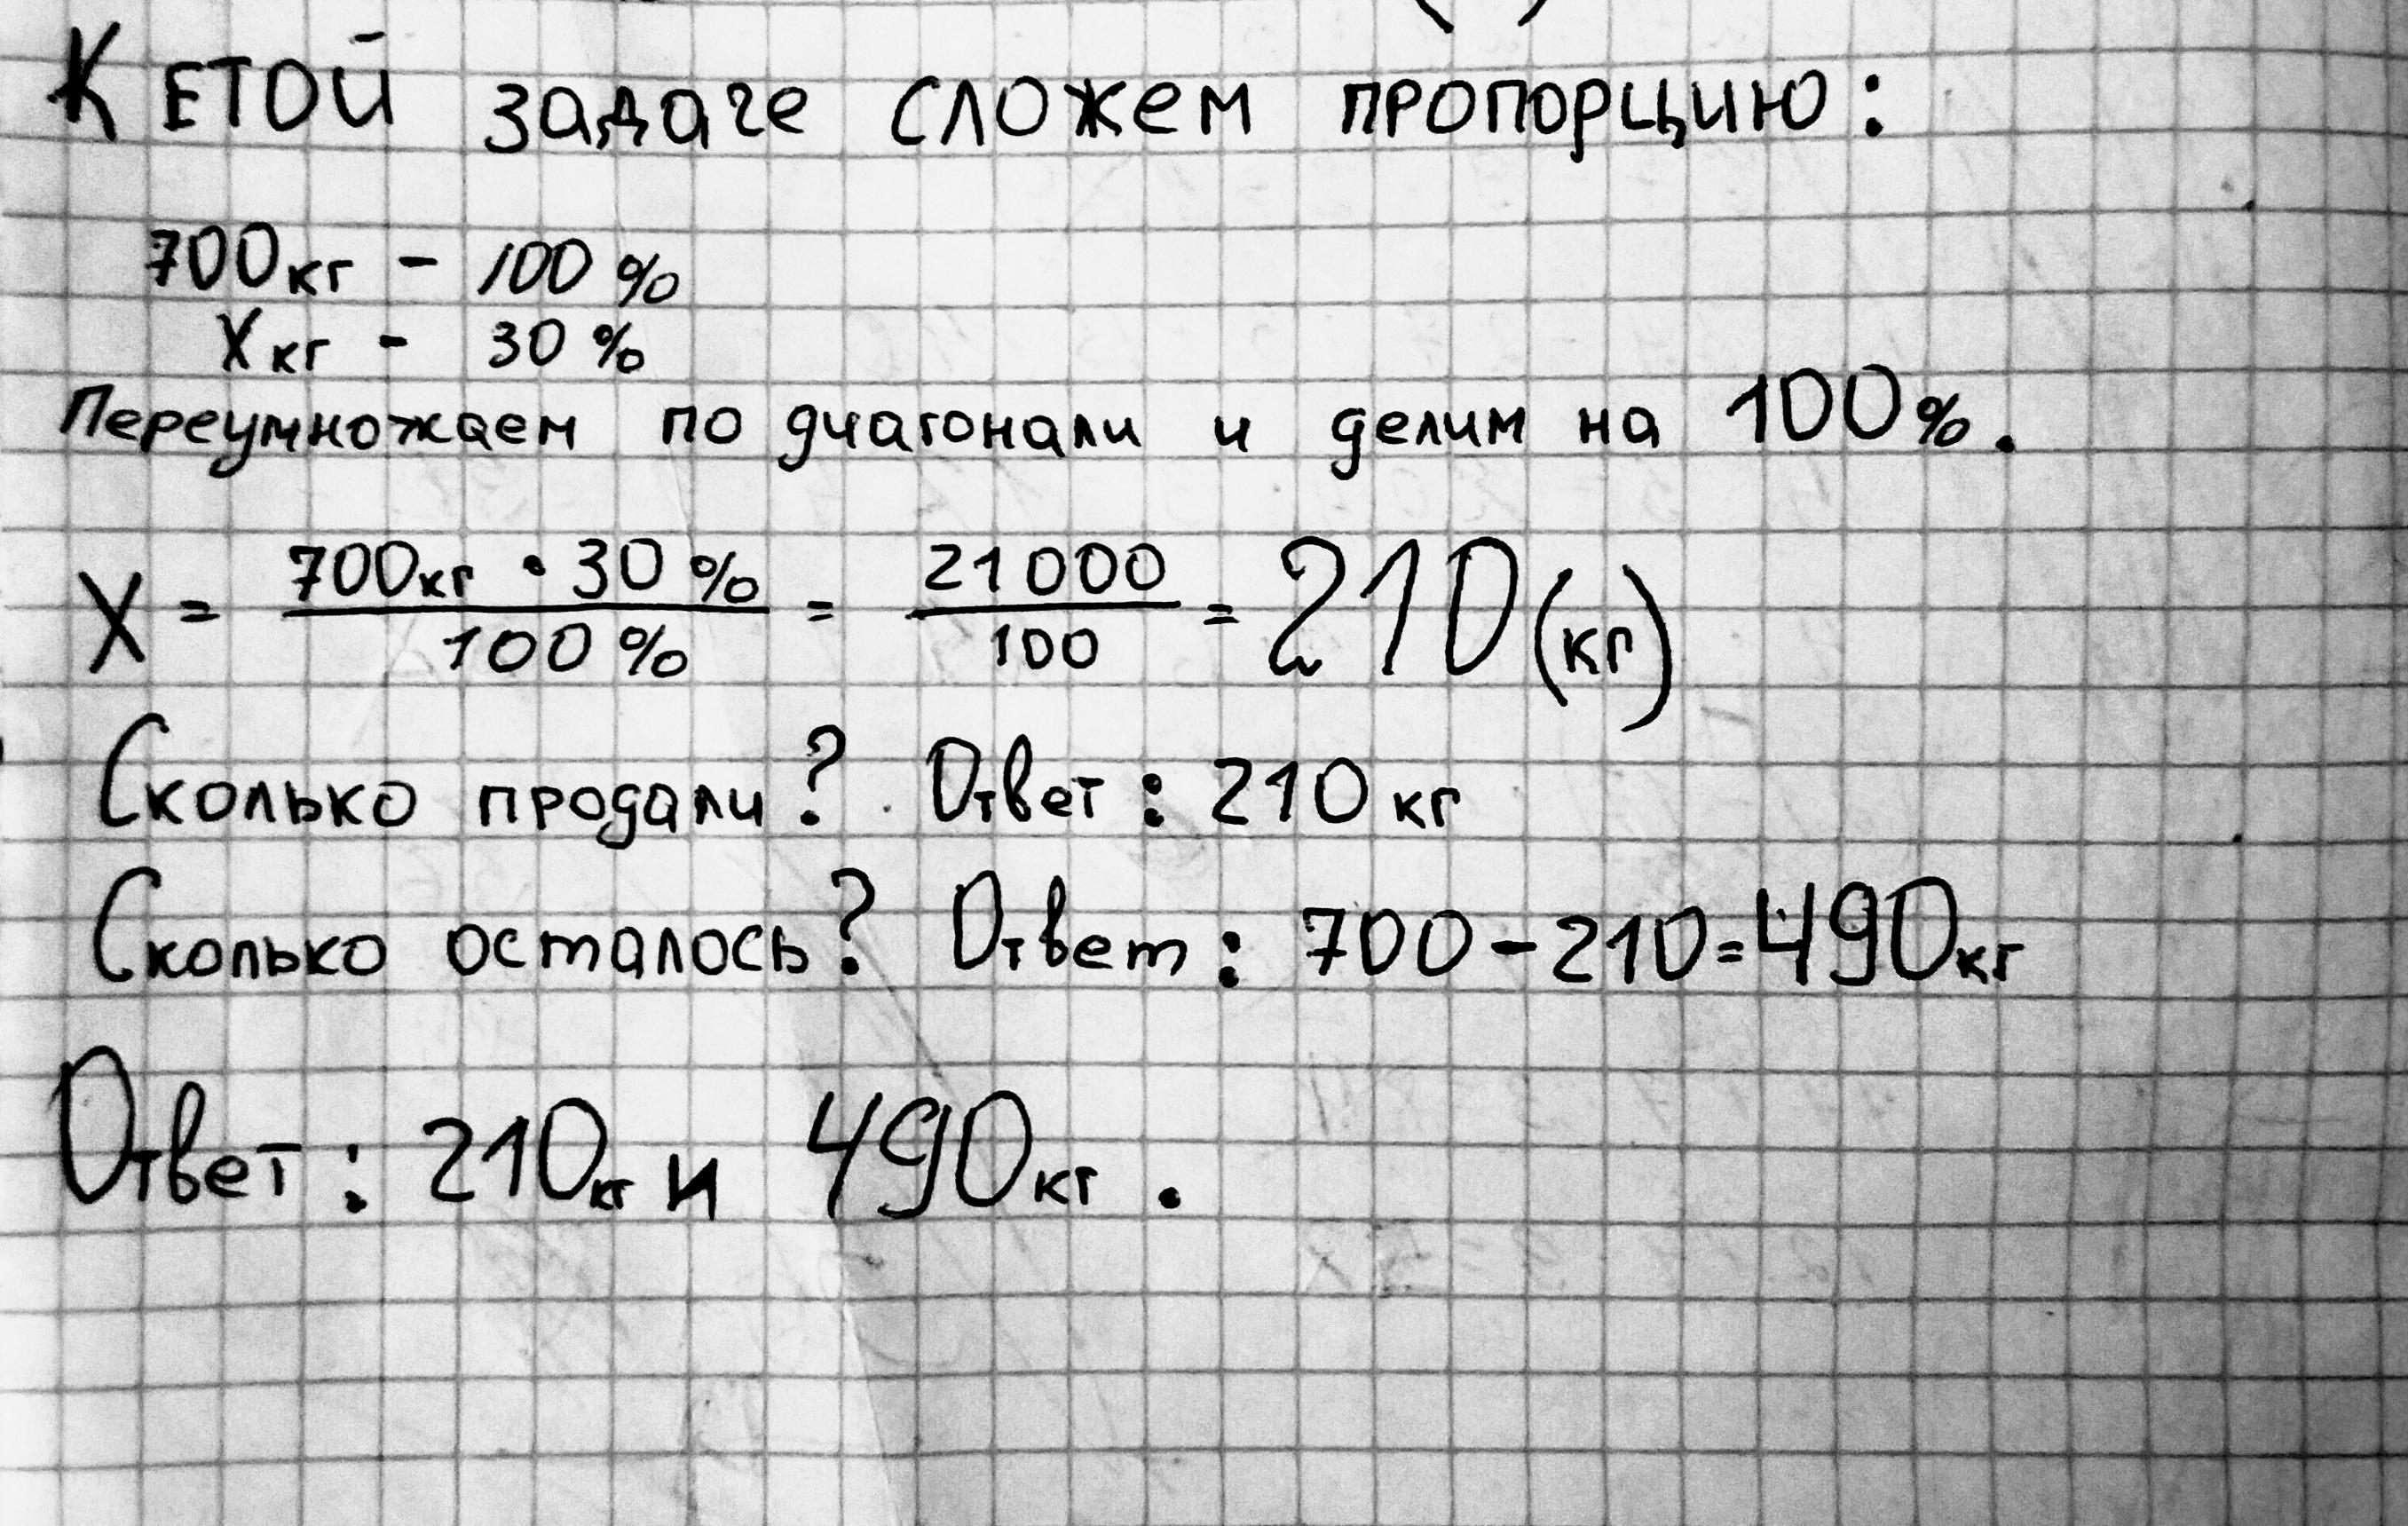 К етой задаче сложем пропорцию:
700кг - 100 %
Xкг - 30 %
Переумножаем по диагонали и делим на 100%.
X = 700кг · 30 % / 100 % = 21000 / 100 = 210 (кг)
Сколько продали? Ответ: 210 кг
Сколько осталось? Ответ: 700-210=490кг
Ответ: 210кг и 490кг.